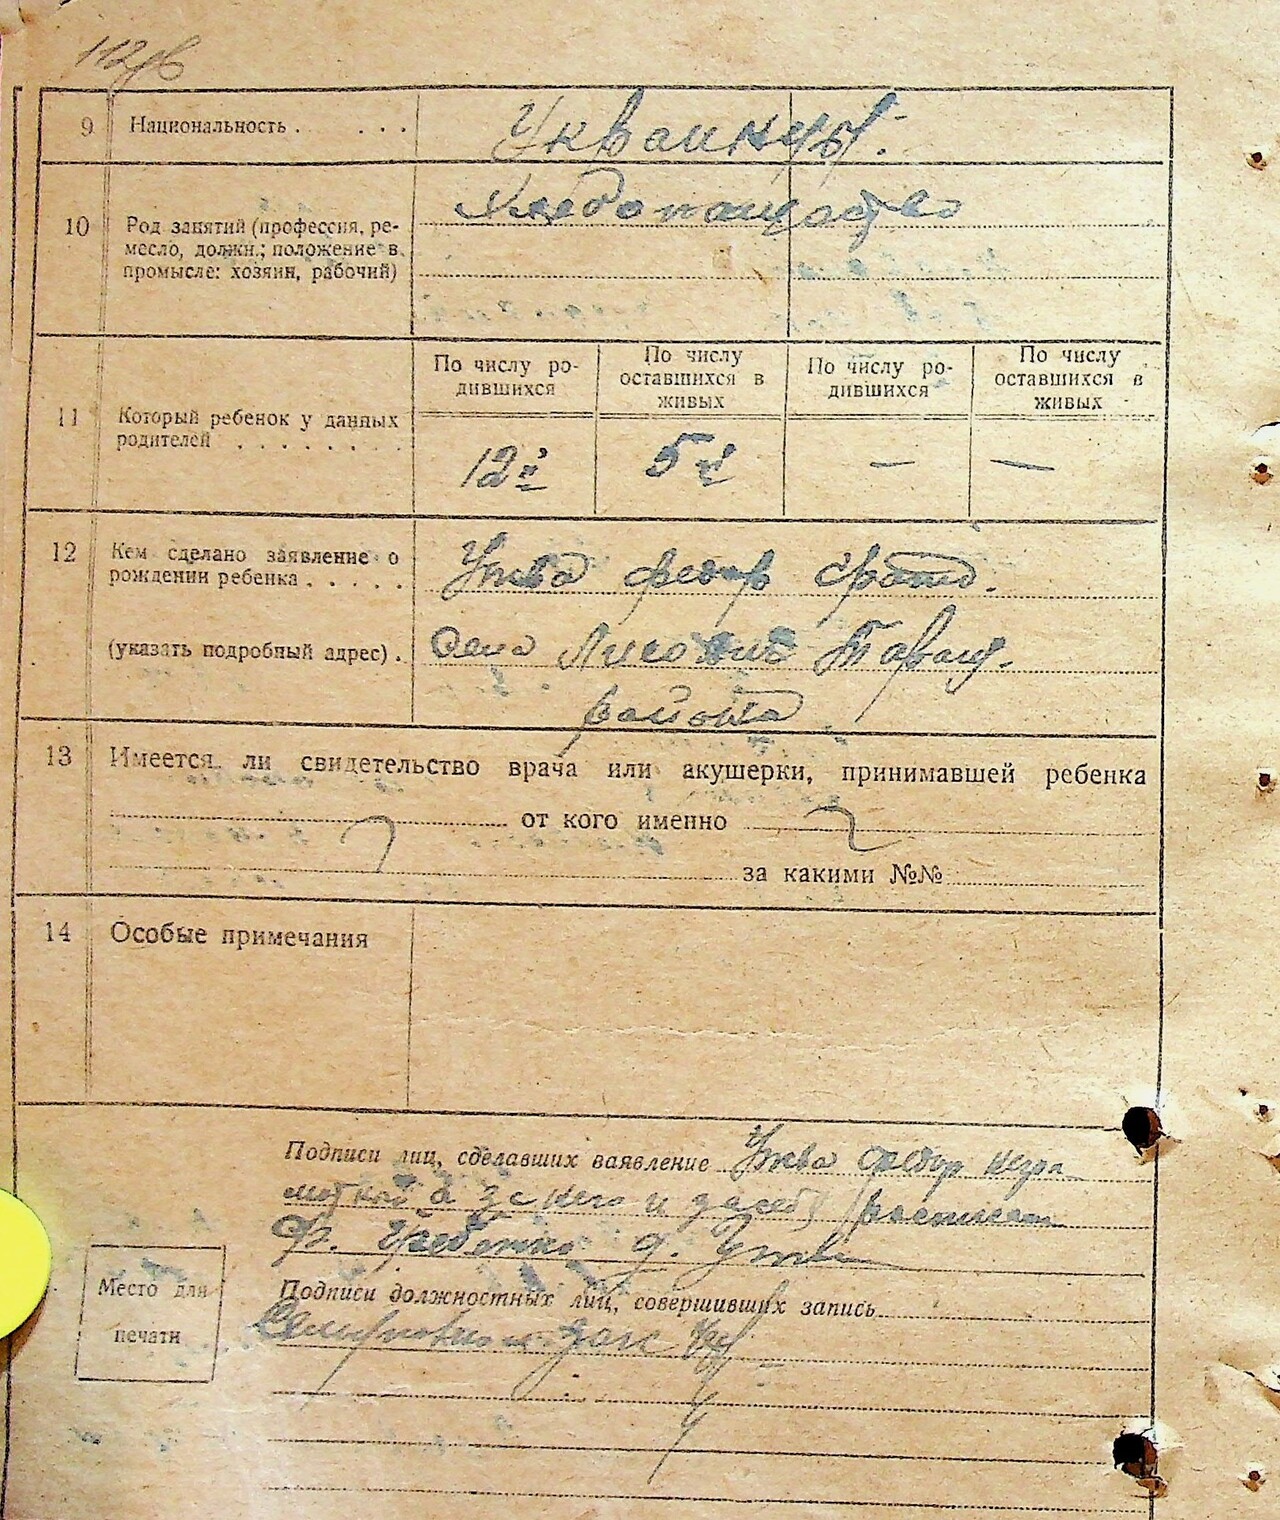 112об
9 Национальность . . . . Украинцы.
10 Род занятий (профессия, ре-
месло, должн.; положение в
промысле: хозяин, рабочий)
Хлебопашество
11 Который ребенок у данных
родителей . . . . . . . .
По числу ро-
дившихся
По числу
оставшихся в
живых
По числу ро-
дившихся
По числу
оставшихся в
живых
12й 5й — —
12 Кем сделано заявление о
рождении ребенка . . . . .
Федор
(указать подробный адрес) .
Села
района
13 Имеется ли свидетельство врача или акушерки, принимавшей ребенка
от кого именно
за какими №№
14 Особые примечания
Подписи лиц, сделавших заявление Федор негра
мотной а за него и за себя росписат
Ф.
Место для
печати
Подписи должностных лиц, совершивших запись